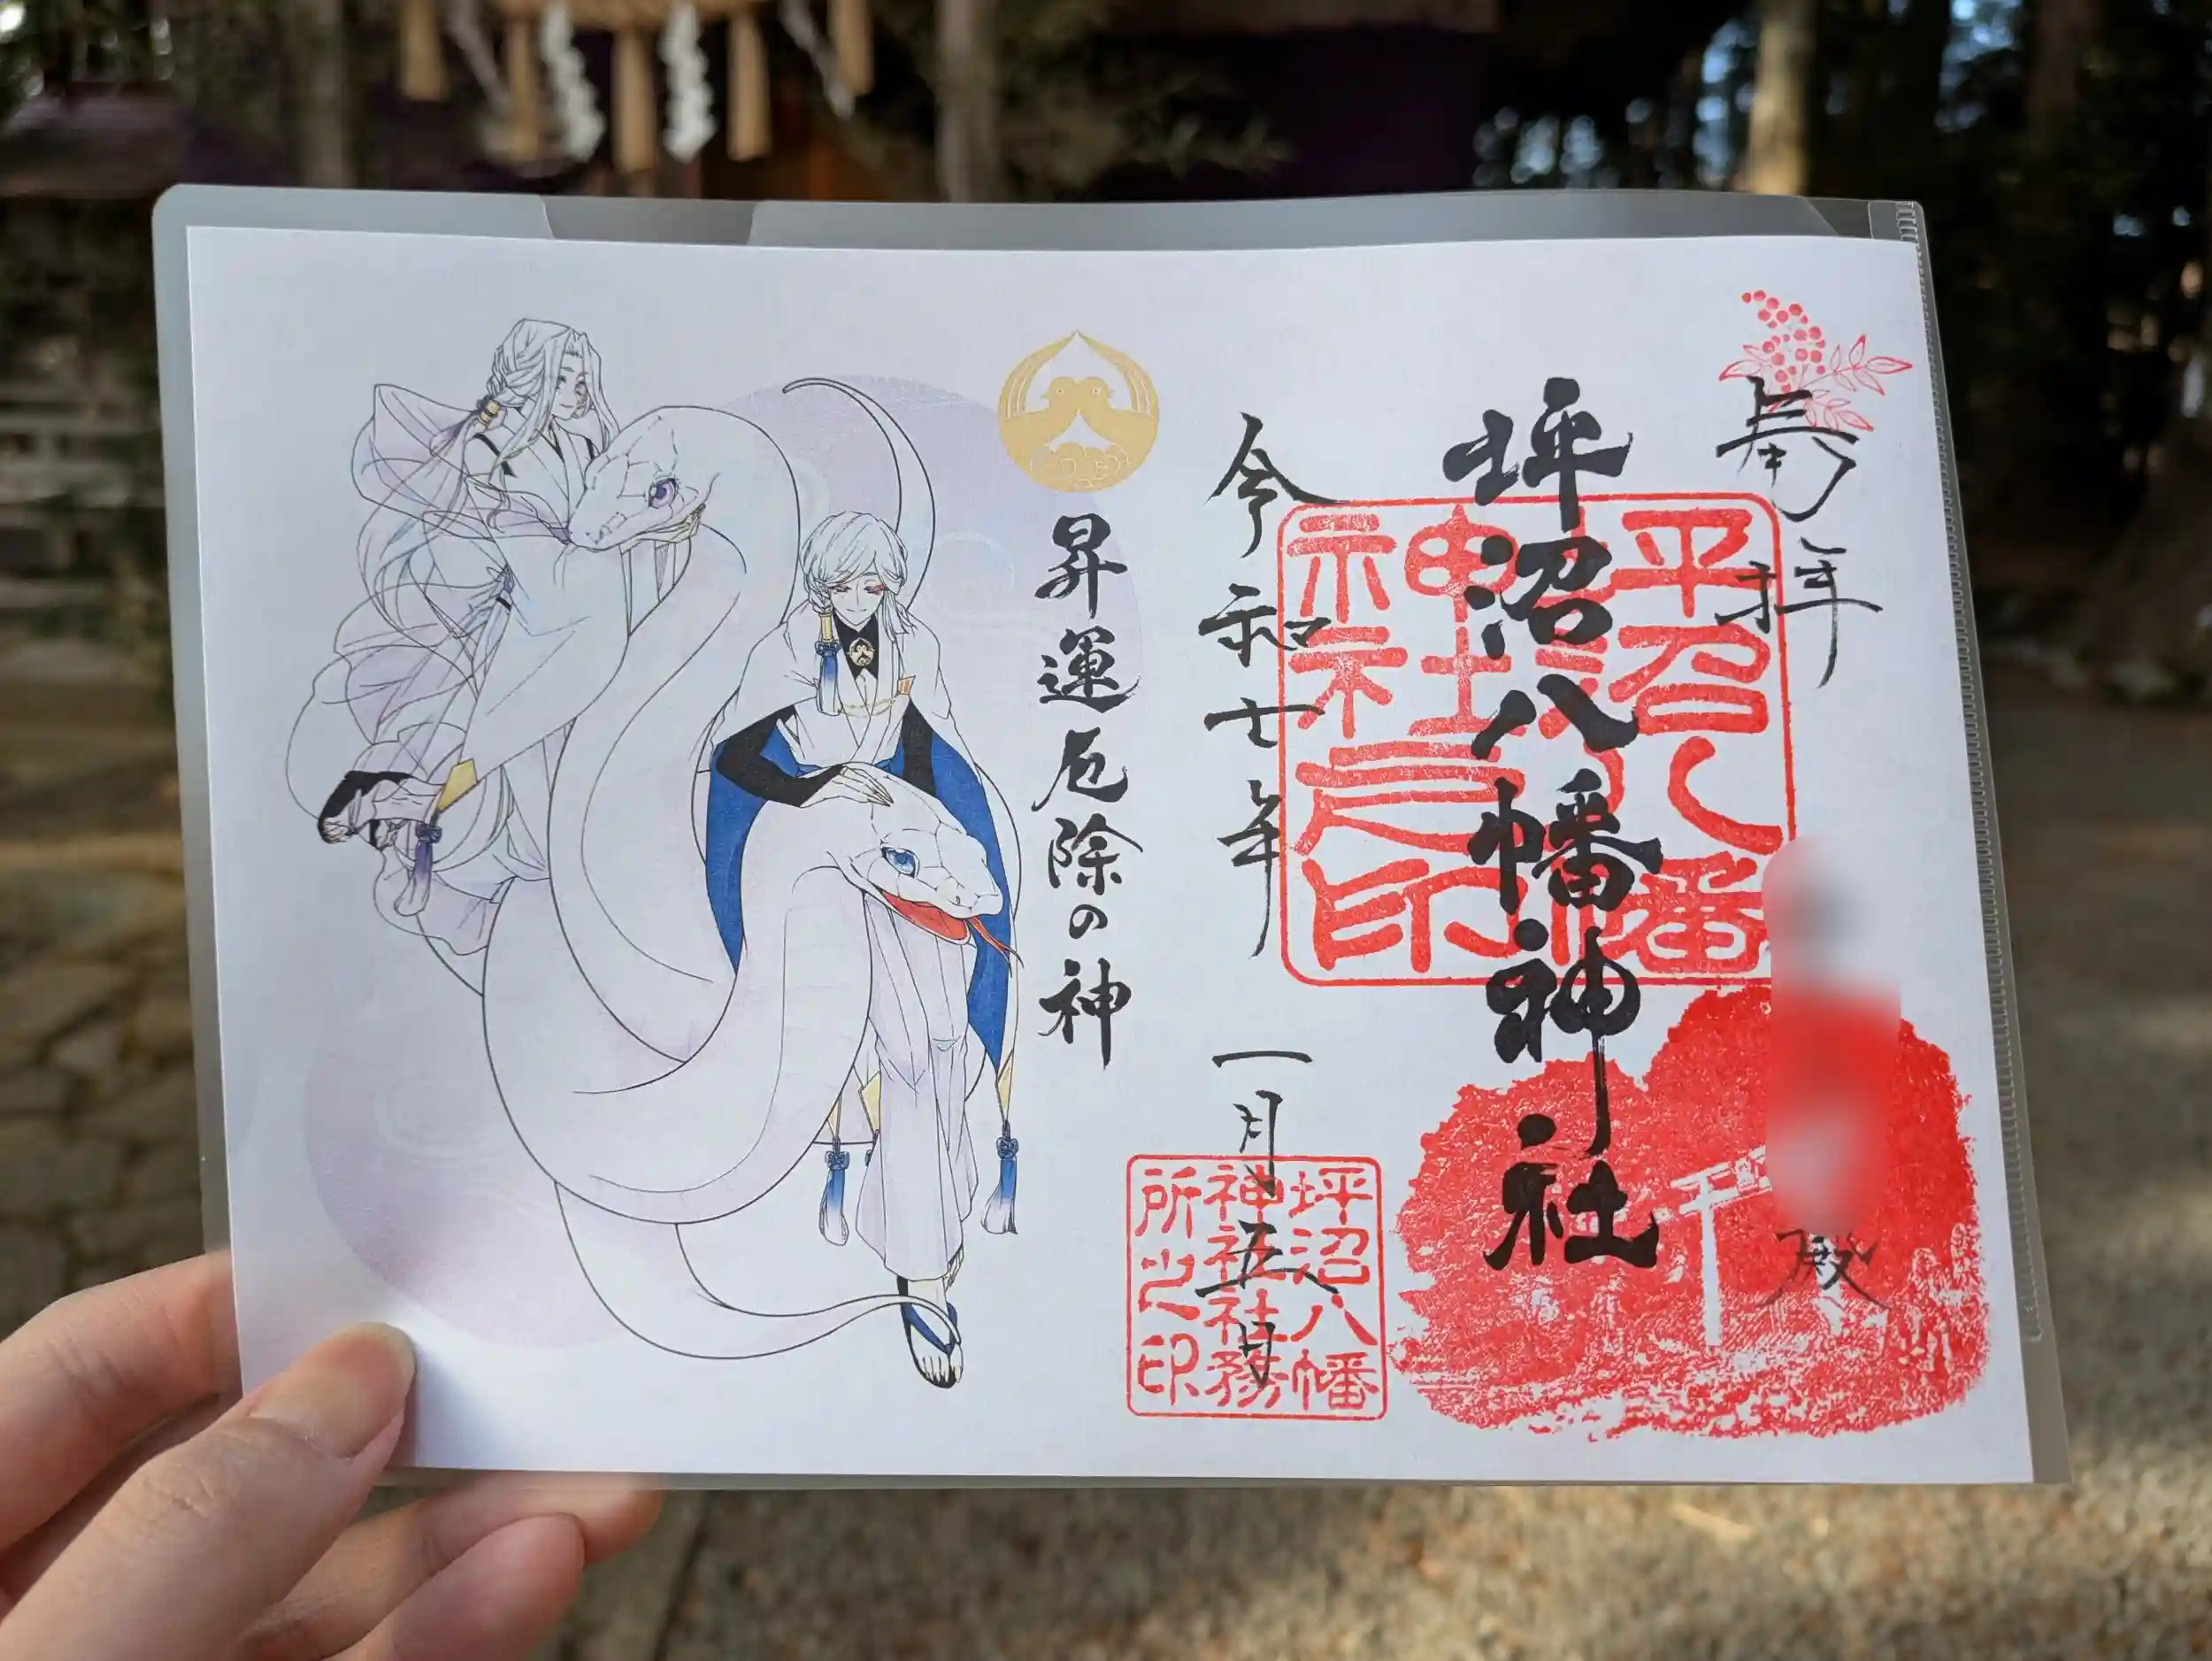 奉拝
殿
坪沼八幡神社
坪沼八幡
神社之印
令和七年 一月五日
坪沼八幡
神社社務
所之印
昇運厄除の神